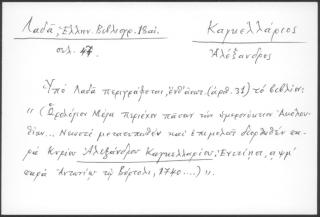 Λαδᾶ, Ἑλλην. Βιβλιογρ. 18 αἰ.
σελ. 47.
Καγκελλάριος
Ἀλέξανδρος
Ὑπὸ Λαδᾶ περιγράφεται, ἐνθ' ἀνωτ. (ἀρθ. 31) τὸ βιβλίον:
"(Ὡρολόγιον Μέγα περιέχον πᾶσαν τὴν ἡμερονύκτιον Ἀκολου-
θίαν... Νεωστὶ μετατυπωθὲν καὶ ἐπιμελῶς διορθωθὲν πα-
ρὰ Κυρίου Ἀλεξάνδρου Καγκελλαρίου, Ἐνετίῃσι, αψμʹ
παρὰ Ἀντωνίῳ τῷ Βόρτολι, 1740...)".